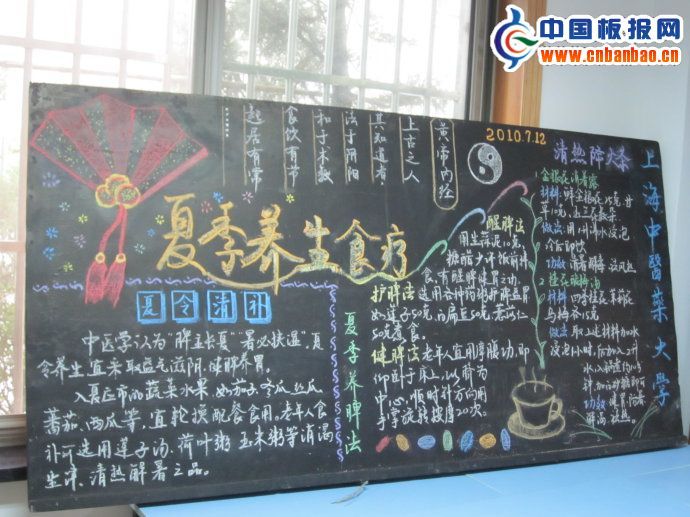 中国板报网
www.cnbanbao.cn
2010.7.12
黄帝内经
上古之人
其知道者
法于阴阳
和于术数
食饮有节
起居有常
夏季养生食疗
夏令清补
中医学认为"脾主长夏""暑必挟湿",夏
令养生宜采取益气滋阴,健脾养胃。
入夏应市的蔬菜水果如茄子冬瓜丝瓜
番茄、西瓜等,宜轮换配餐食用。老年人食
补可选用莲子汤、荷叶粥、玉米粥等消渴
生津,清热解暑之品。
夏季养脾法
醒脾法
用生蒜泥10克,
糖醋少许饭前拌
食,有醒脾健胃之功.
护脾法 选用各种药粥护脾益胃
如莲子50克,白扁豆50克,薏以仁
50克煮食.
健脾法 老年人宜用摩腹功,即
仰卧于床上,以脐为
中心,顺时针方向用
手掌旋转按摩20次.
清热降火茶
1 金银花
材料:鲜金银花15克,甘
草10克,
做法:用水浸泡
冷后即饮
功效:清暑
材料
乌梅茶15克
做法:取上述材料加水
浸泡小时,后加入
功效:健胃
上海中医药大学